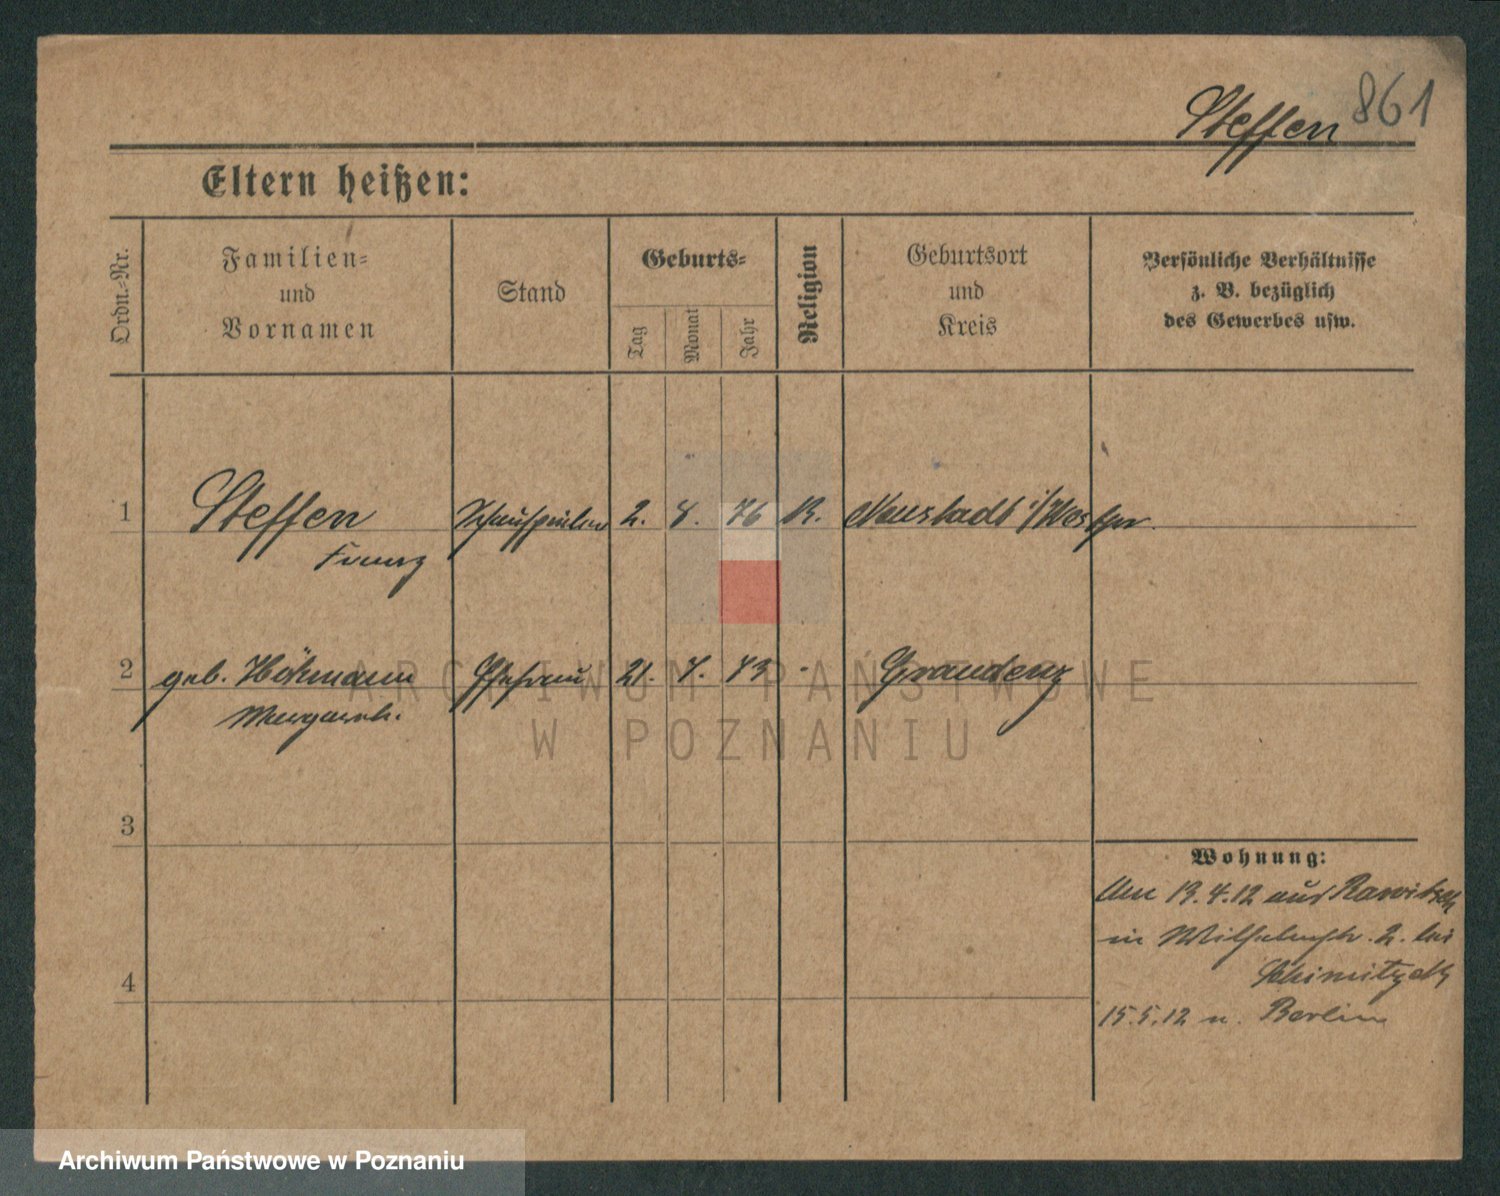 Steffen 861
Eltern heißen:
Ordn.-Nr.
Familien-
und
Vornamen
Stand
Geburts-
Tag
Monat
Jahr
Religion
Geburtsort
und
Kreis
Persönliche Verhältnisse
z. B. bezüglich
des Gewerbes usw.
1 Steffen Schauspieler 2. 8. 76 K. Neustadt i/Westpr.
Franz
2 geb. Höhmann Ehefrau 21. 7. 83 Graudenz
Margareth.
3
4
Wohnung:
Am 19.4.12 aus Rawitsch
in Wilhelmstr. 2. bei
15.5.12 n. Berlin
ARCHIWUM PAŃSTWOWE
W POZNANIU
Archiwum Państwowe w Poznaniu